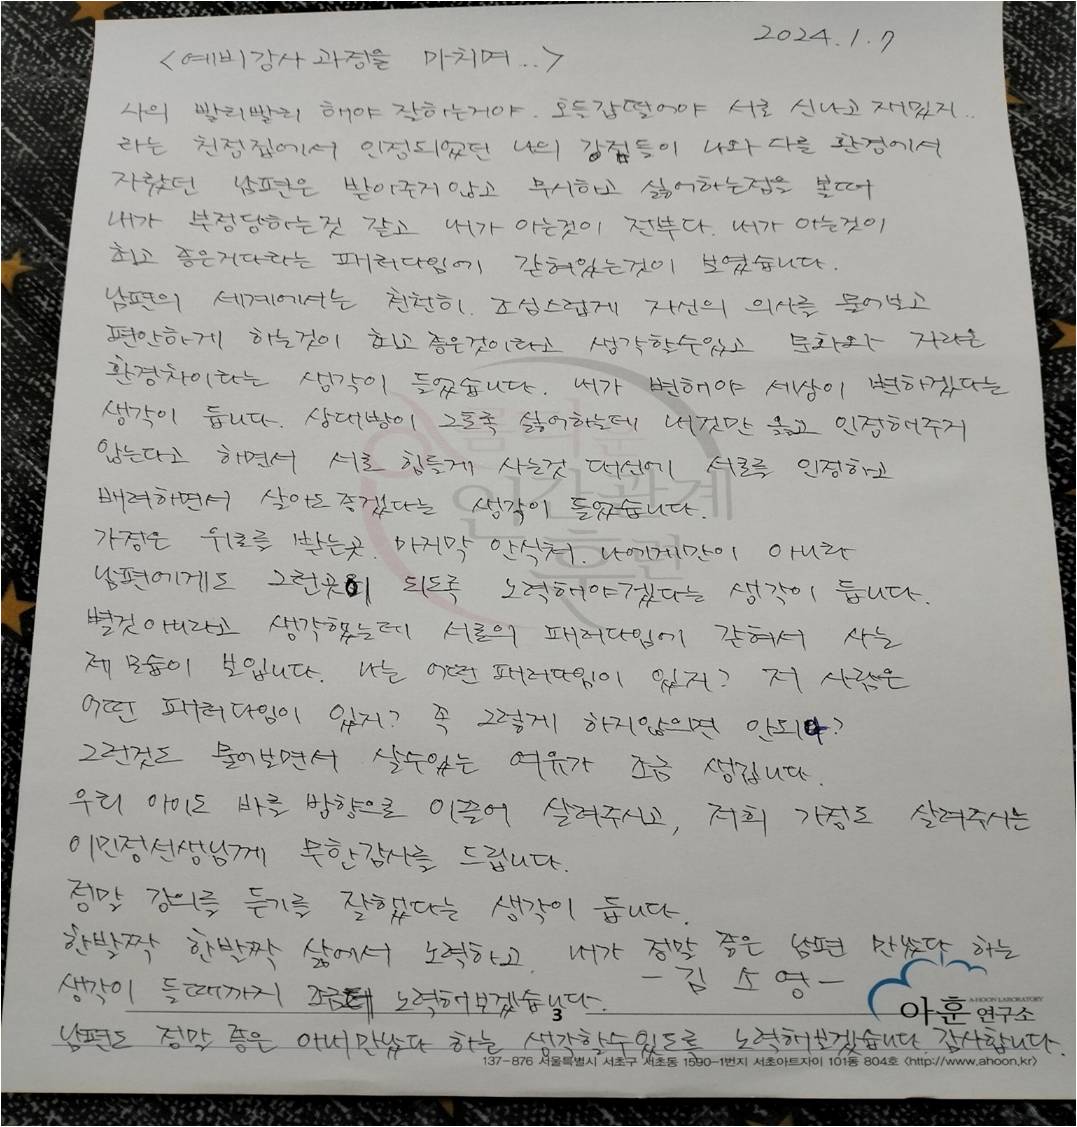 2024.1.7
<예비강사 과정을 마치며..>
사의 빨리빨리 해야 잘하는거야. 오두갑떨어야 서로 신나고 재밌지..
라는 친정집에서 인정되었던 나의 강점들이 나와 다를 환경에서
자랐던 남편은 받아주지 않고 무시하고 싫어하는점을 볼때
내가 부정당하는것 같고 내가 아는것이 전부다. 내가 아는것이
최고 좋은거다라는 패러다임에 갇혀있는것이 보였습니다.
남편의 세계에서는 천천히. 조심스럽게 자신의 의사를 물어보고
편안하게 하는것이 최고 좋은것이라고 생각할수있고 문화와 자라온
환경차이라는 생각이 들었습니다. 내가 변해야 세상이 변하겠다는
생각이 듭니다. 상대방이 그토록 싫어하는데 내것만 옳고 인정해주지
않는다고 하면서 서로 힘들게 사는것 대신에 서로를 인정하고
배려하면서 살아도 좋겠다는 생각이 들었습니다.
가정은 위로를 받는곳. 마지막 안식처. 나에게만이 아니라
남편에게도 그런곳이 되도록 노력해야겠다는 생각이 듭니다.
별것아니라고 생각했는데 서로의 패러다임에 갇혀서 사는
제 모습이 보입니다. 나는 어떤 패러다임이 있지? 저 사람은
어떤 패러다임이 있지? 꼭 그렇게 하지않으면 안되나?
그런것도 물어보면서 살수있는 여유가 조금 생깁니다.
우리 아이도 바를 방향으로 이끌어 살려주시고, 저희 가정도 살려주시는
이민정선생님께 무한감사를 드립니다.
정말 강의를 듣기를 잘했다는 생각이 듭니다.
한발짝 한발짝 삶에서 노력하고. 내가 정말 좋은 남편 만났다 하는
-김소영-
생각이 들때까지 조금더 노력해보겠습니다.
3
아훈 연구소
A-HOON LABORATORY
남편도 정말 좋은 아내만났다 하는 생각할수있도록 노력해보겠습니다. 감사합니다.
137-876 서울특별시 서초구 서초동 1590-1번지 서초아트자이 101동 804호 <http://www.ahoon.kr>
인간관계
훈련